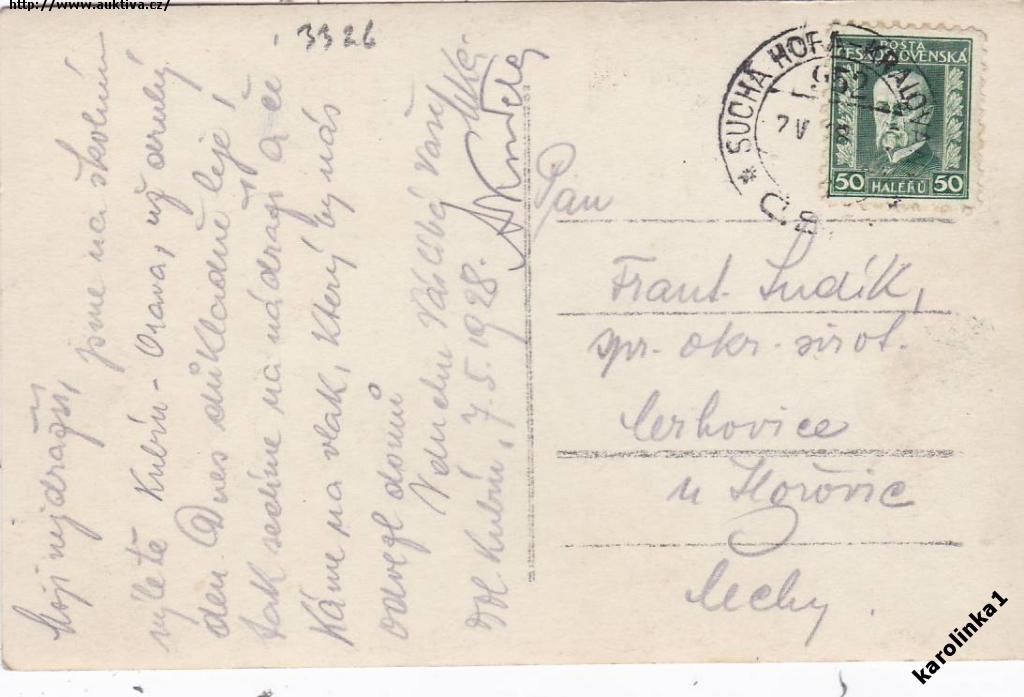 http://www.auktiva.cz/
3326
Moji nejdražší,
jsme na školním
výletě Kubín - Orava, už druhý
den. Dnes důkladně leje,
tak sedíme na nádraží a če
káme na vlak, který by nás
odvezl domů
V duchu Vás líbá Vaše
Dol. Kubín, 7.5.1928.
* SUCHÁ HORA-KRALOVA
953
7 V 28
Č.S.P.*
POŠTA
ČESKOSLOVENSKÁ
50 HALÉŘŮ 50
Pan
Frant. Sudík,
spr. okr. sirot.
Cerhovice
u Hořovic
Čechy.
karolinka1